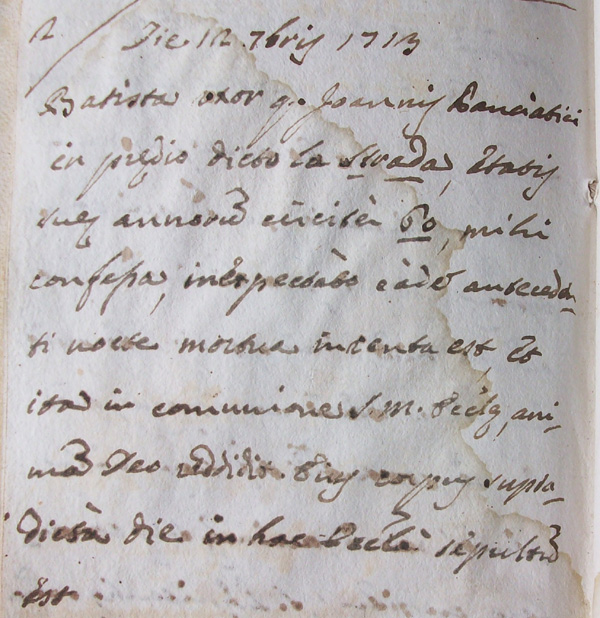 2
Die 12 7bris 1713
Batista uxor q. Joannis Panciatici
in prędio dicto la Strada, ętatis
suę annorū circitèr 60, mihi
confessa, inexpectato eàdē anteceden-
ti nocte mortua inventa est, et
ita in comunione S. M. Eccłę, ani-
mā Deo reddidit. Eius corpus supra-
dictà die in hac Eccłà sepultū
est